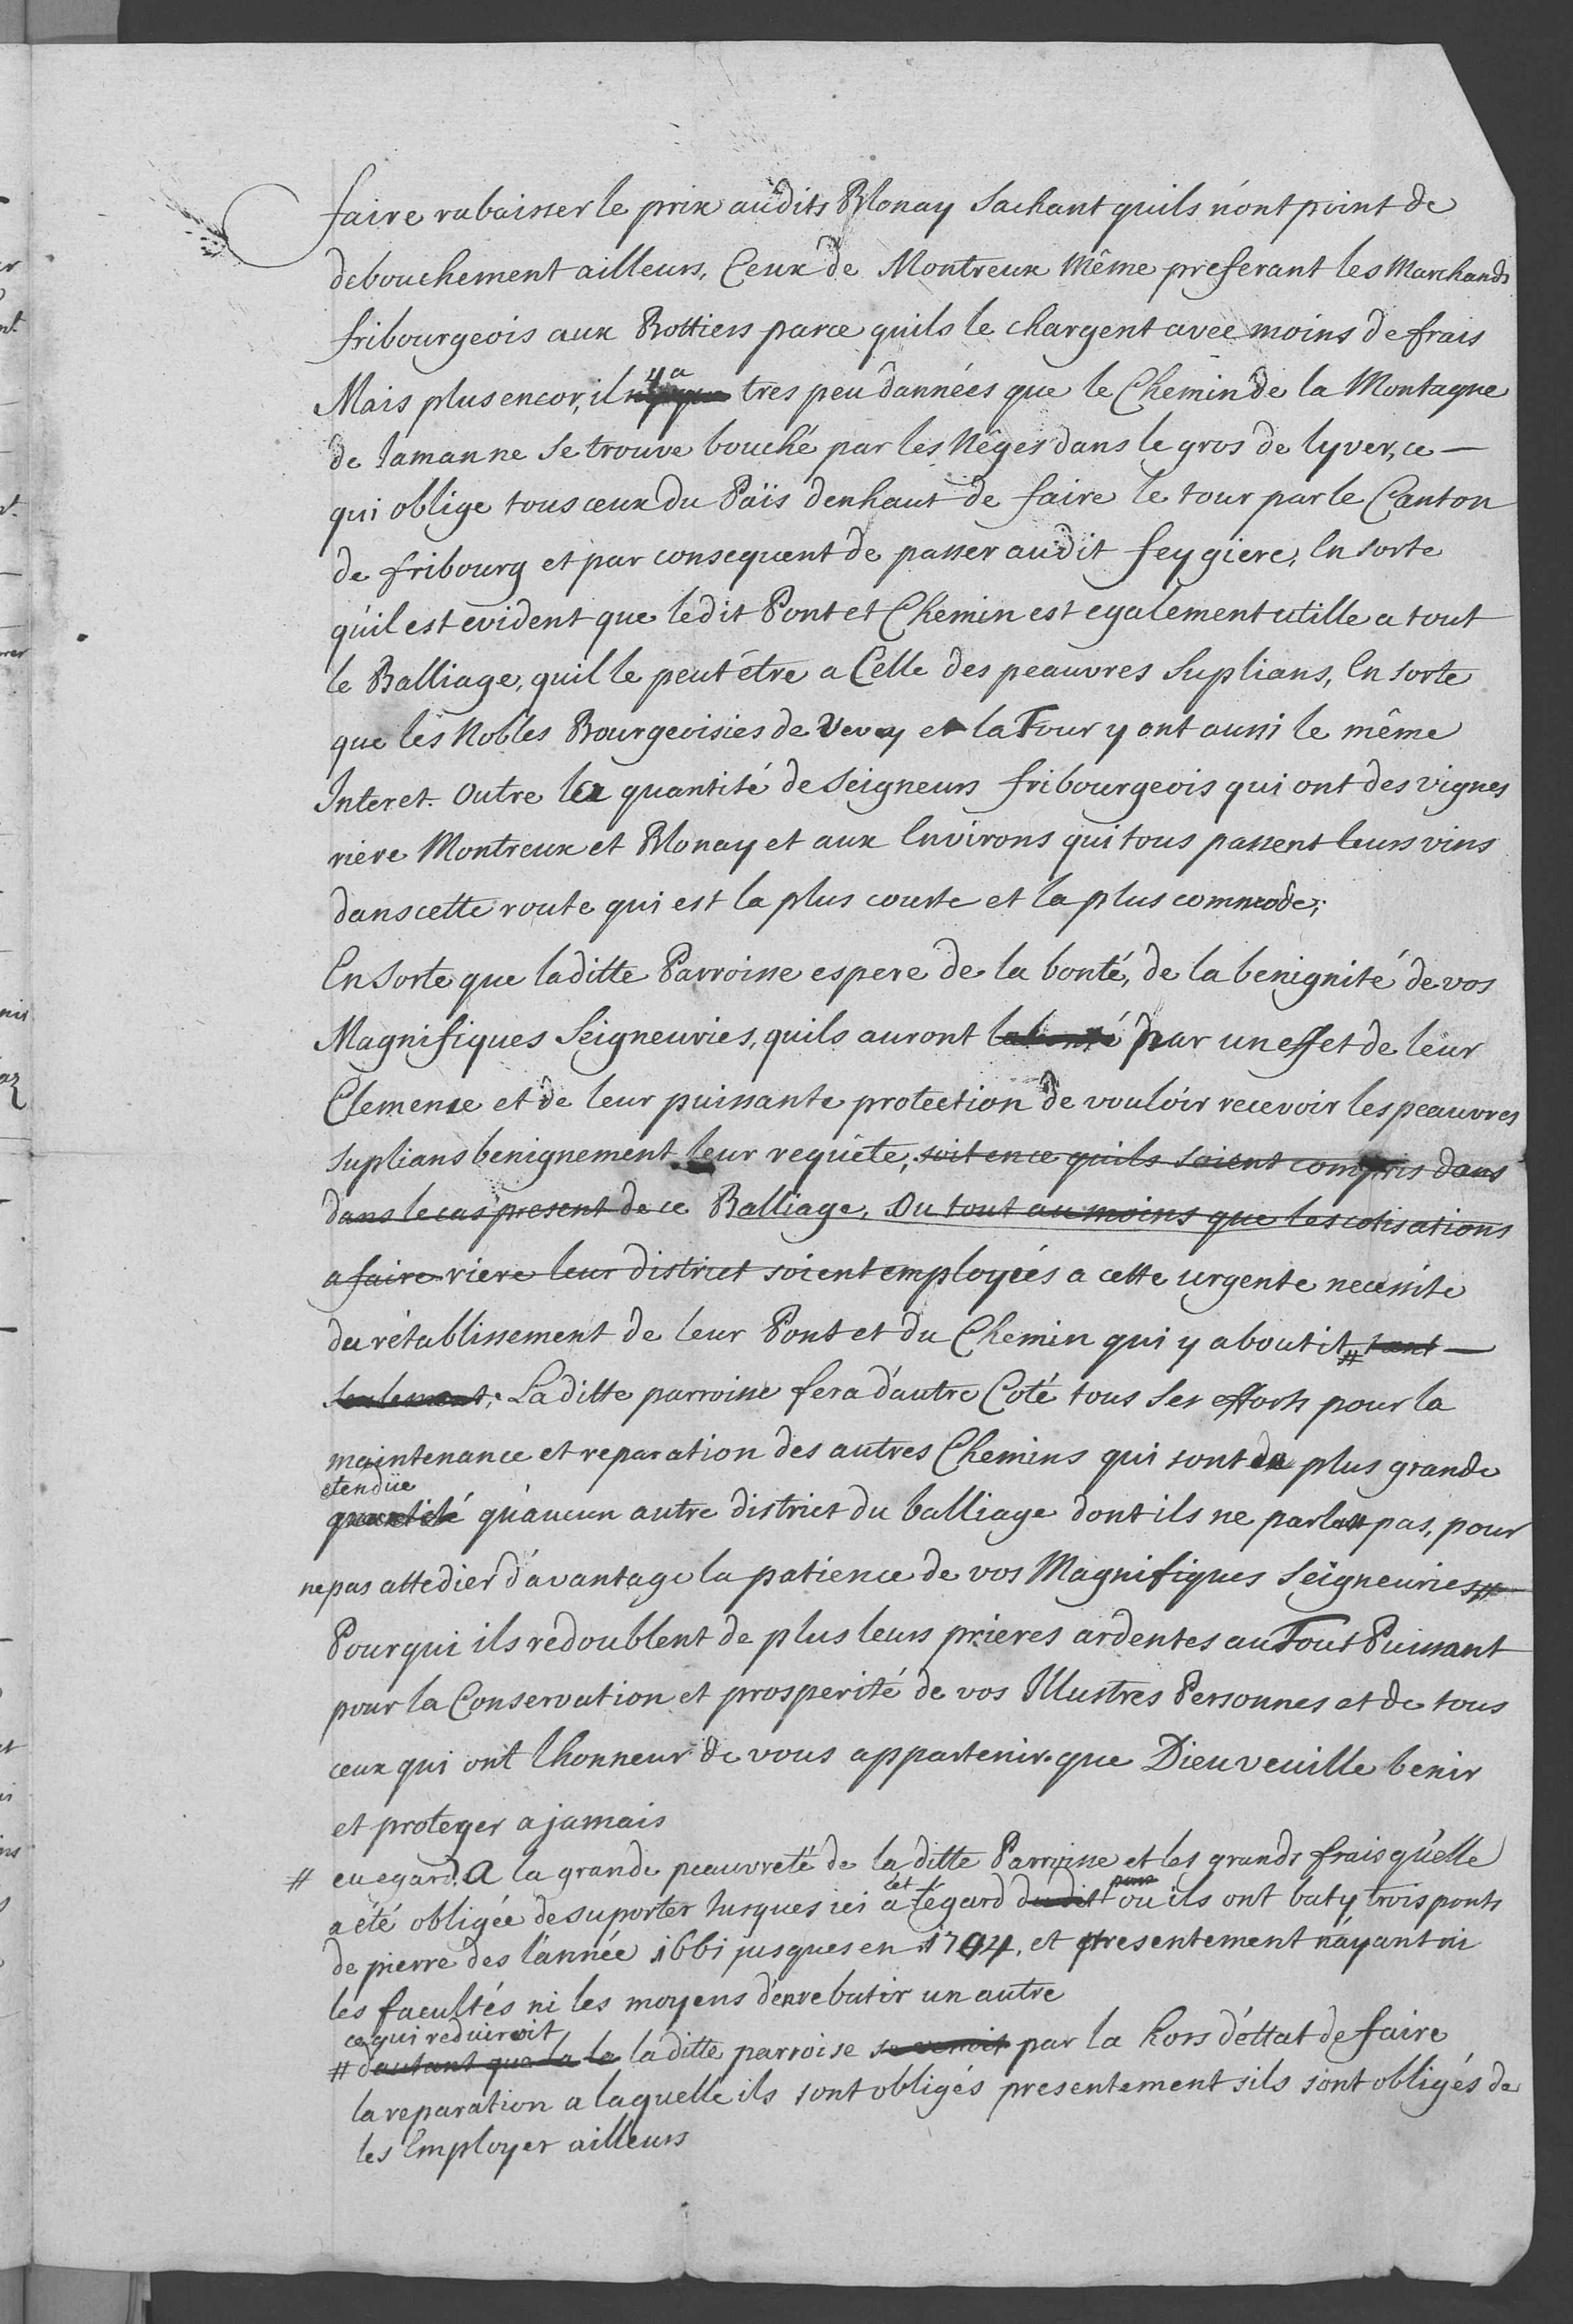 faire rabaisser le prix audits Blonay Sachant quils n'ont point de
debouchement ailleurs, Ceux de Montreux Même preferant les Marchands
fribourgeois aux Bottiers parce quils le chargent avec moins de frais
Mais plus encor, il y a tres peu dannées que le Chemin de la Montagne
de Jamanne se trouve bouché par les Nêges dans le gros de lyver, ce —
qui oblige tous ceux du Païs denhaut de faire le tour par le Canton
de fribourg et par consequent de passer audit feygiere, En sorte
qu'il est evident que ledit Pont et Chemin est egalement utille a tout
le Balliage, quil le peut être a Celle des peauvres Suplians, En sorte
que les Nobles Bourgeoisies de Vevay et la Tour y ont aussi le même
Interet. Outre la quantité de Seigneurs fribourgeois qui ont des vignes
riere Montreux et Blonay et aux Environs qui tous passent leurs vins
dans cette route qui est la plus courte et la plus commode;
En Sorte que laditte Parroisse espere de la bonté, de la benignité de vos
Magnifiques Seigneuries, quils auront la bonté par un effet de leur
Clemence et de leur puissante protection de vouloir recevoir les peauvres
suplians benignement leur requête, soit en ce quils soient compris dans
dans le cas present de ce Balliage, Ou tout au moins que les cotisations
a faire riere leur district soient employées a cette urgente necessite
du rétablissement de leur Pont et du Chemin qui y aboutit # tant —
seulement; Laditte parroisse fera d'autre Coté tous ses efforts pour la
maintenance et reparation des autres Chemins qui sont en plus grande
etendüe
quantité qu'aucun autre district du balliage dont ils ne parlent pas, pour
ne pas attedier d'avantage la patience de vos Magnifiques Seigneuries #
Pour qui ils redoublent de plus leurs prieres ardentes au Tout Puissant
pour la Conservation et prosperité de vos Illustres Personnes et de tous
ceux qui ont lhonneur de vous appartenir que Dieu veuille benir
et proteger a jamais
# eu egard A la grande peauvreté de la ditte Parroisse et les grands frais qu'elle
a été obligée de suporter Jusques ici a cet égard dudit pont ou ils ont baty trois ponts
de pierre des l'année 1661 jusques en 1704, et presentement n'ayant ni
les facultés ni les moyens d'en rebatir un autre
ce qui reduiroit
# dautant que la la la ditte parroise se verroit par la hors d'ettat de faire
la reparation a laquelle ils sont obligés presentement sils sont obligés de
les Employer ailleurs